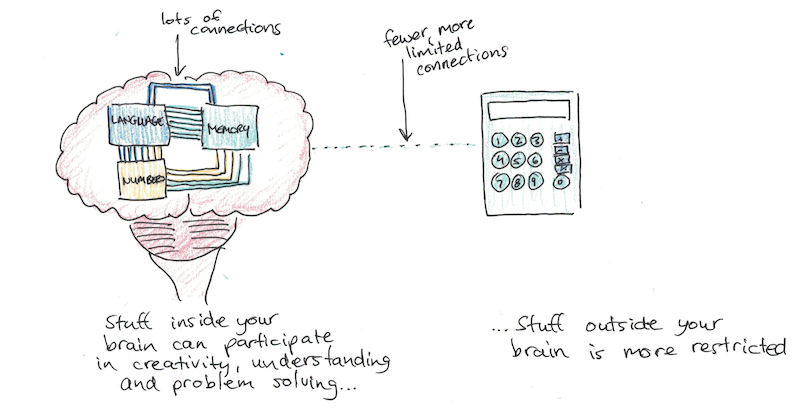 lots of
connections
fewer, more
limited
connections
LANGUAGE
MEMORY
NUMBERS
1 2 3 +
4 5 6 -
7 8 9 0
x
Stuff inside your
brain can participate
in creativity, understanding
and problem solving...
...Stuff outside your
brain is more restricted